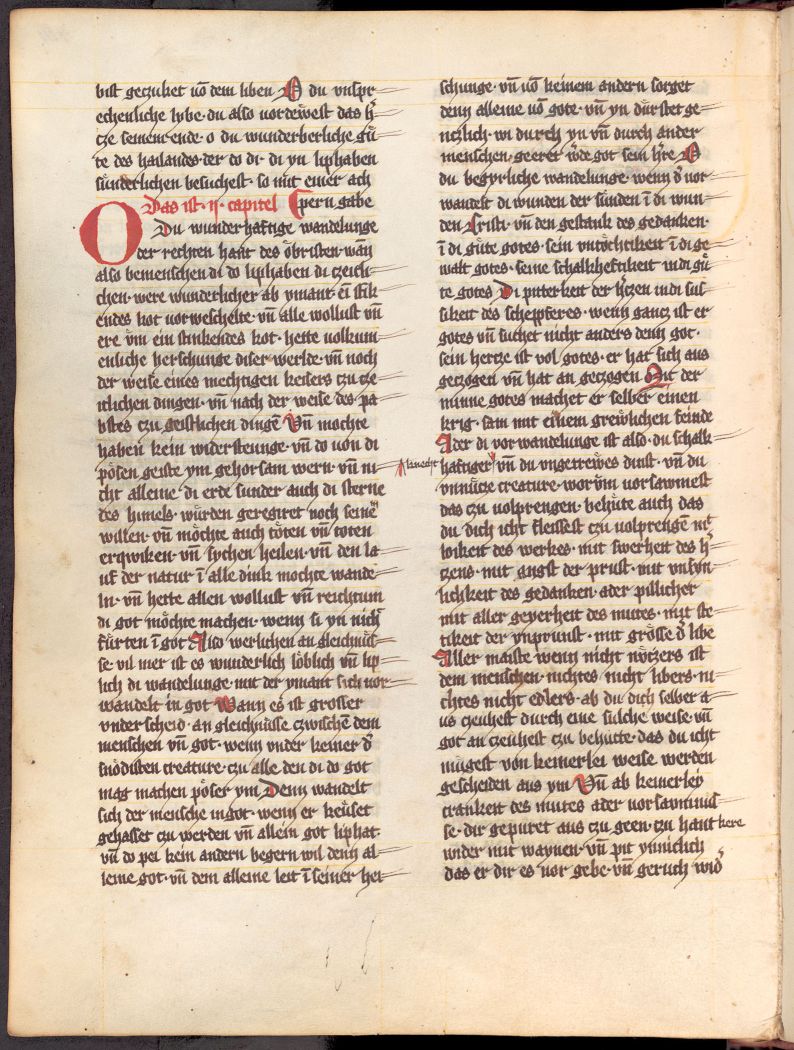 bist geczuket uō dem liben O du vnspr
echenliche lybe du also uordewest das h̾
cze semencende · o du wunderberliche gu̍
te des hailandes der do di · di yn liphaben
sunderlichen besuchest · so mit einer ach
Das ist · ij · capitel pern gabe
O Du wunderhaftige wandelunge
der rechten hant des öbristen · wan̄
also bemenschen di do liphaben di czeich
chen · were wunderlicher ab ymant · ei̅ stik
endes kot uorweschelte · vn̄ alle wollust vn̄
ere vm ein stinkendes kot · hette uolkum
enliche herschunge diser werlde · vn̄ noch
der weise eines mechtigen keisers czu cze
itlichen dingen · vn̄ nach der weise des pa
bstes czu geistlichen dingē Vn̄ mochte
haben kein widersteunge · vn̄ do uon di
pösen geiste ym gehorsam wern · vn̄ ni
cht alleine di erde sunder auch di sterne
des himels · wurden geregiret noch seinē
willen · vn̄ möchte auch töten vn̄ toten
erqwiken · vn̄ sychen heilen · vn̄ den la
uf der natur ī alle dink mochte wande
ln · vn̄ hette allen wollust vn̄ reichtum
di got möchte machen · wenn si yn nicht
fürten ī got Also werlichen an gleichnüs
se vil mer ist es wunderlich löblich vn̄ lip
lich di wandelunge · mit der ymant sich uor
wandelt in got Wann es ist grosser
vnderscheid · an gleichnüsse czwischē dem
menschen vn̄ got · wenn vnder keiner d̾
snödisten creature · czu alle den di do got
mag machen pöser ym Denn wandelt
sich der mensche in got · wenn er keuset
gehasset czu werden vn̄ allein got liphat ·
vn̄ do pei kein andern begern wil denn al
leine got · vn̄ dem alleine leit ī seiner her
schunge · vn̄ uō keinem andern sorget
denn alleine uō gote · vn̄ yn dürstet ge
nczlich · wi durch yn vn̄ durch ander
menschen · geeret w̾de got sein h̾re O
du begyrliche wandelunge · wenn d̾ uor
wandelt di wunden der sunden ī di wun
den Cristi · vn̄ den gestank des gedanken ·
ī di güte gotes · sein vntöchtikeit ī di ge
walt gotes · seine schalkheftikeit in di gü
te gotes Di pitterkeit der h̾czen in di sus
sikeit des scheppferes · wenn gancz ist er
gotes vn̄ suchet nicht anders denn got ·
sein hertze ist vol gotes · er hat sich aus
geczogen vn̄ hat an geczogen Mit der
minne gotes machet er selber einen
krig · sam mit einem grewlichen feinde
Ader di vorwandelunge ist also · du schalk
knecht
haftiger vn̄ du vngetrewes dinst · vn̄ du
vnnucze creature · worvm uorsawmest
das czu uolprengen · behüte auch das
du dich icht fleissest czu uolprengē
des werkes · mit swerheit des h̾
czens · mit angst der prust · mit vnsyn
lichkeit des gedanken · ader pillichet
mit aller geyerheit des mutes · mit ste
tikeit der ynprunst · mit grösse d̾ libe
Aller maiste wenn nicht nötzers ist
dem menschen · nichtes nicht libers · ni
chtes nicht edlers · ab du dich selber a
us czeuhest durch eine sulche weise · vn̄
got an czeuhest czu behutte · das du icht
mügest von keinerlei weise werden
gescheiden aus ym Vn̄ ab keinerley
crankeit des mutes ader uorsaumnis
se · dir gepuret aus czu geen · czu hant kere
wider mit waynen · vn̄ pit ynniclich
das er dir es uor gebe · vn̄ geruch wid̾